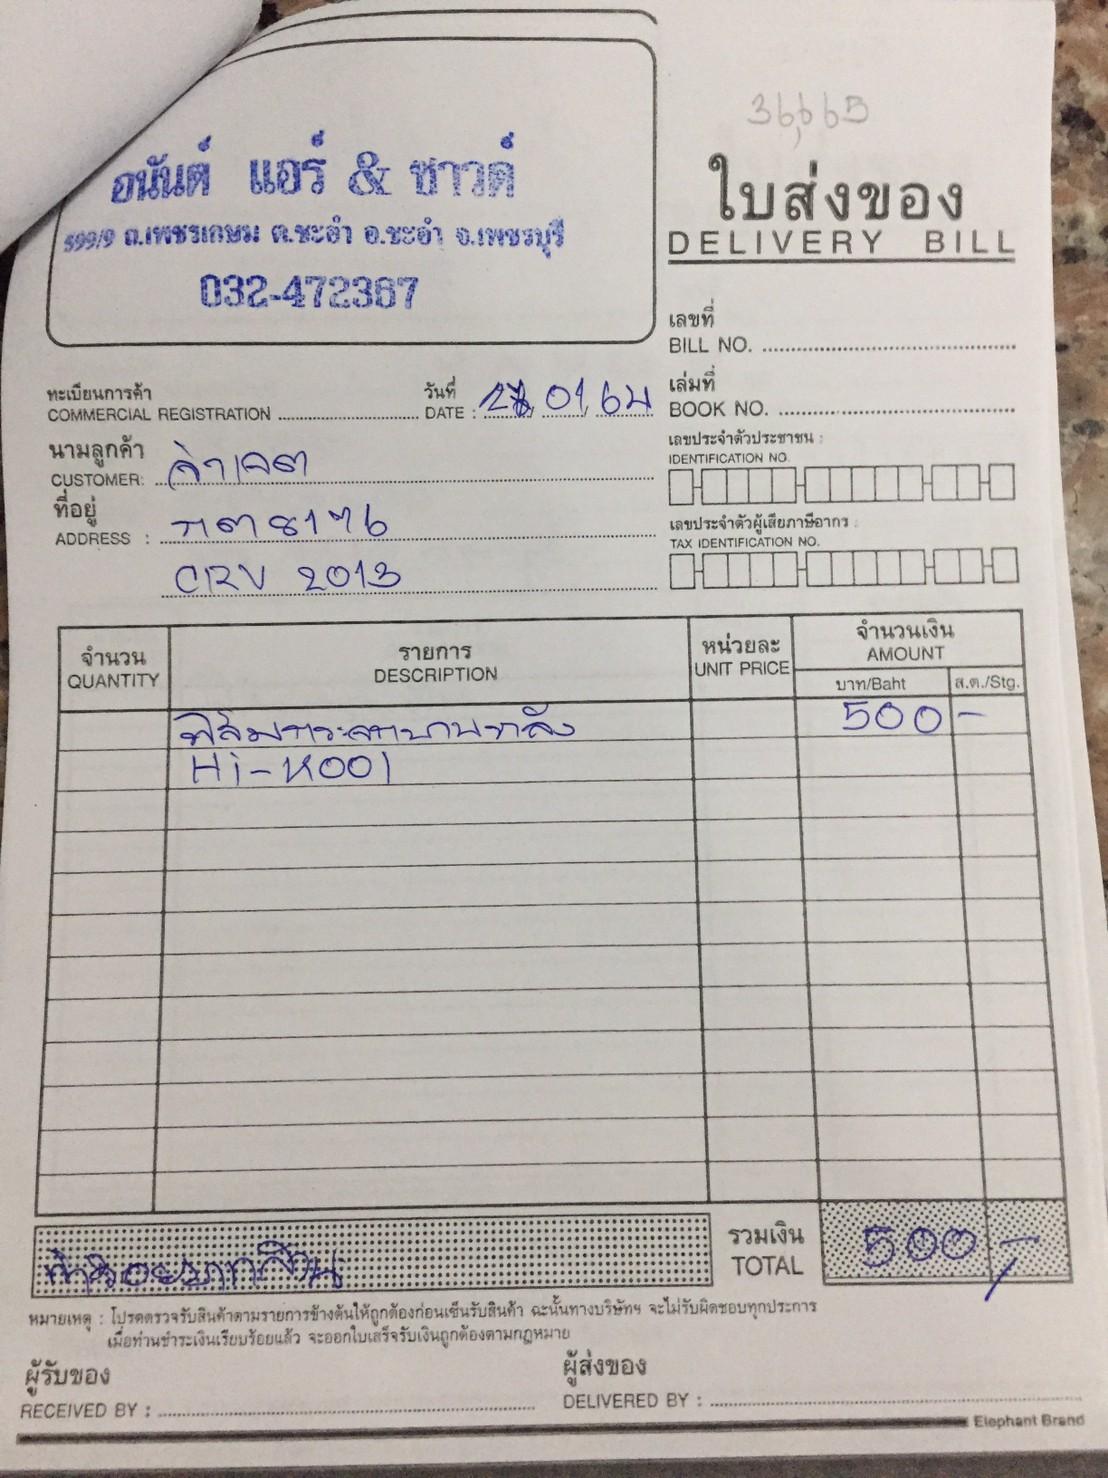 36,665
อนันต์ แอร์ & ซาวด์
599/9 ถ.เพชรเกษม ต.ชะอำ อ.ชะอำ จ.เพชรบุรี
032-472367
ใบส่งของ
DELIVERY BILL
เลขที่
BILL NO.
เล่มที่
BOOK NO.
ทะเบียนการค้า
COMMERCIAL REGISTRATION
วันที่
DATE : 01, 64
นามลูกค้า
CUSTOMER:
ที่อยู่
ADDRESS : 8176
CRV 2013
เลขประจำตัวประชาชน :
IDENTIFICATION NO.
เลขประจำตัวผู้เสียภาษีอากร :
TAX IDENTIFICATION NO.
จำนวน รายการ หน่วยละ จำนวนเงิน
QUANTITY DESCRIPTION UNIT PRICE AMOUNT
บาท/Baht ส.ต./Stg.
ฟิล์มกระจกบานหลัง 500 -
Hi-K001
รวมเงิน
TOTAL 500 -
หมายเหตุ : โปรดตรวจรับสินค้าตามรายการข้างต้นให้ถูกต้องก่อนเซ็นรับสินค้า ฉะนั้นทางบริษัทฯ จะไม่รับผิดชอบทุกประการ
เมื่อท่านชำระเงินเรียบร้อยแล้ว จะออกใบเสร็จรับเงินถูกต้องตามกฎหมาย
ผู้รับของ
RECEIVED BY :
ผู้ส่งของ
DELIVERED BY :
Elephant Brand